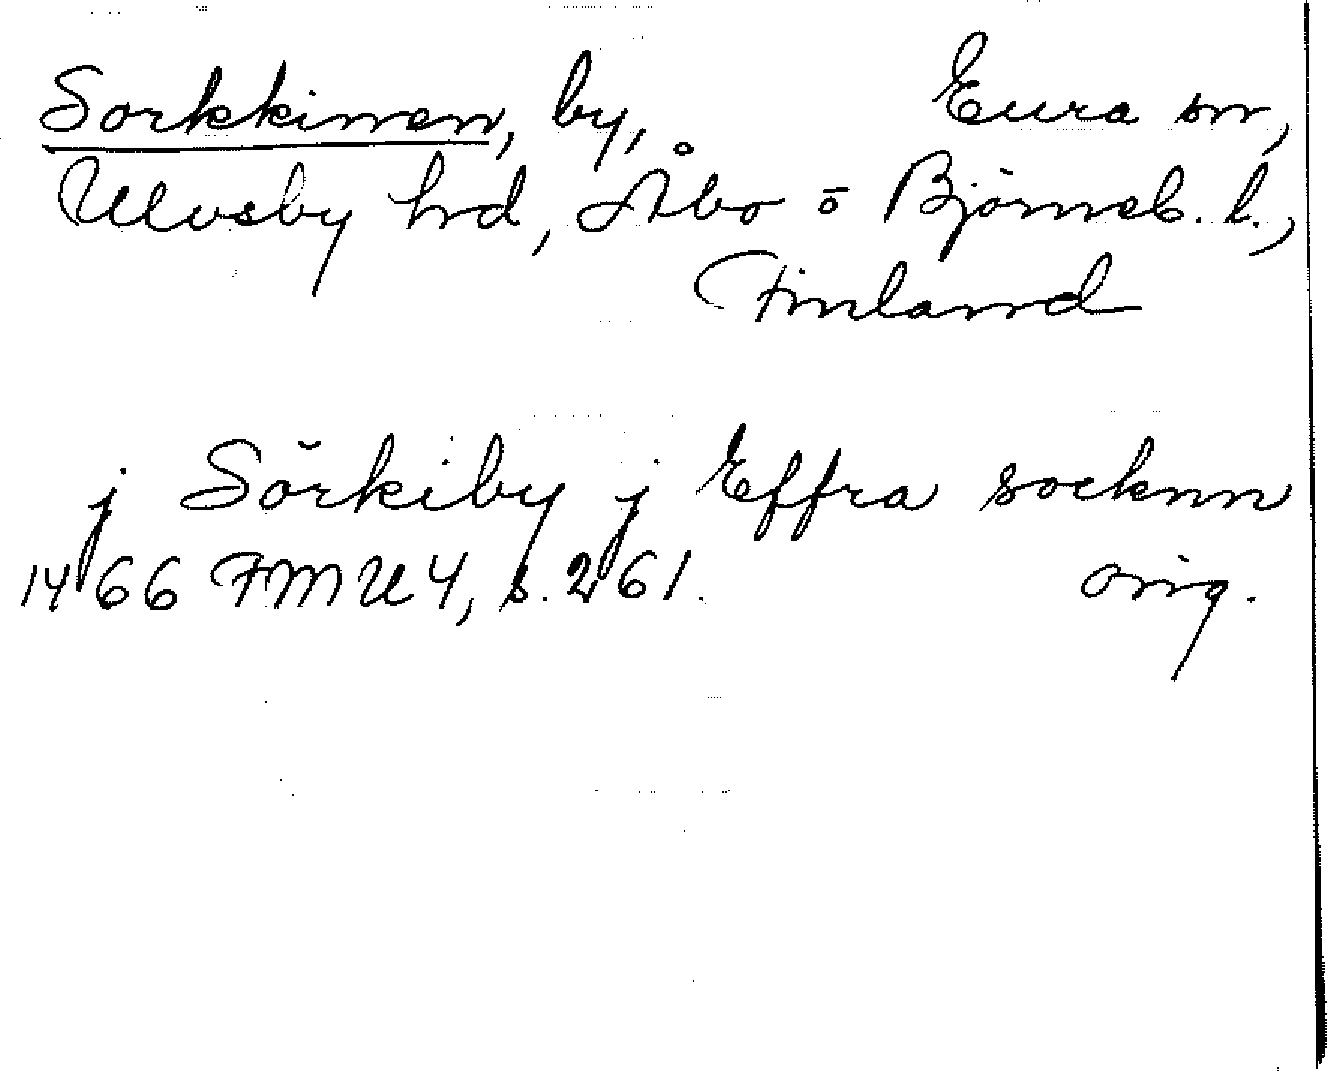 Sorkkinen, by, Eura sn,
Ulvsby hrd, Åbo o Björneb. l.,
Finland
j Sörkiby j Effra socknn
1466 FMU 4, s. 261. orig.